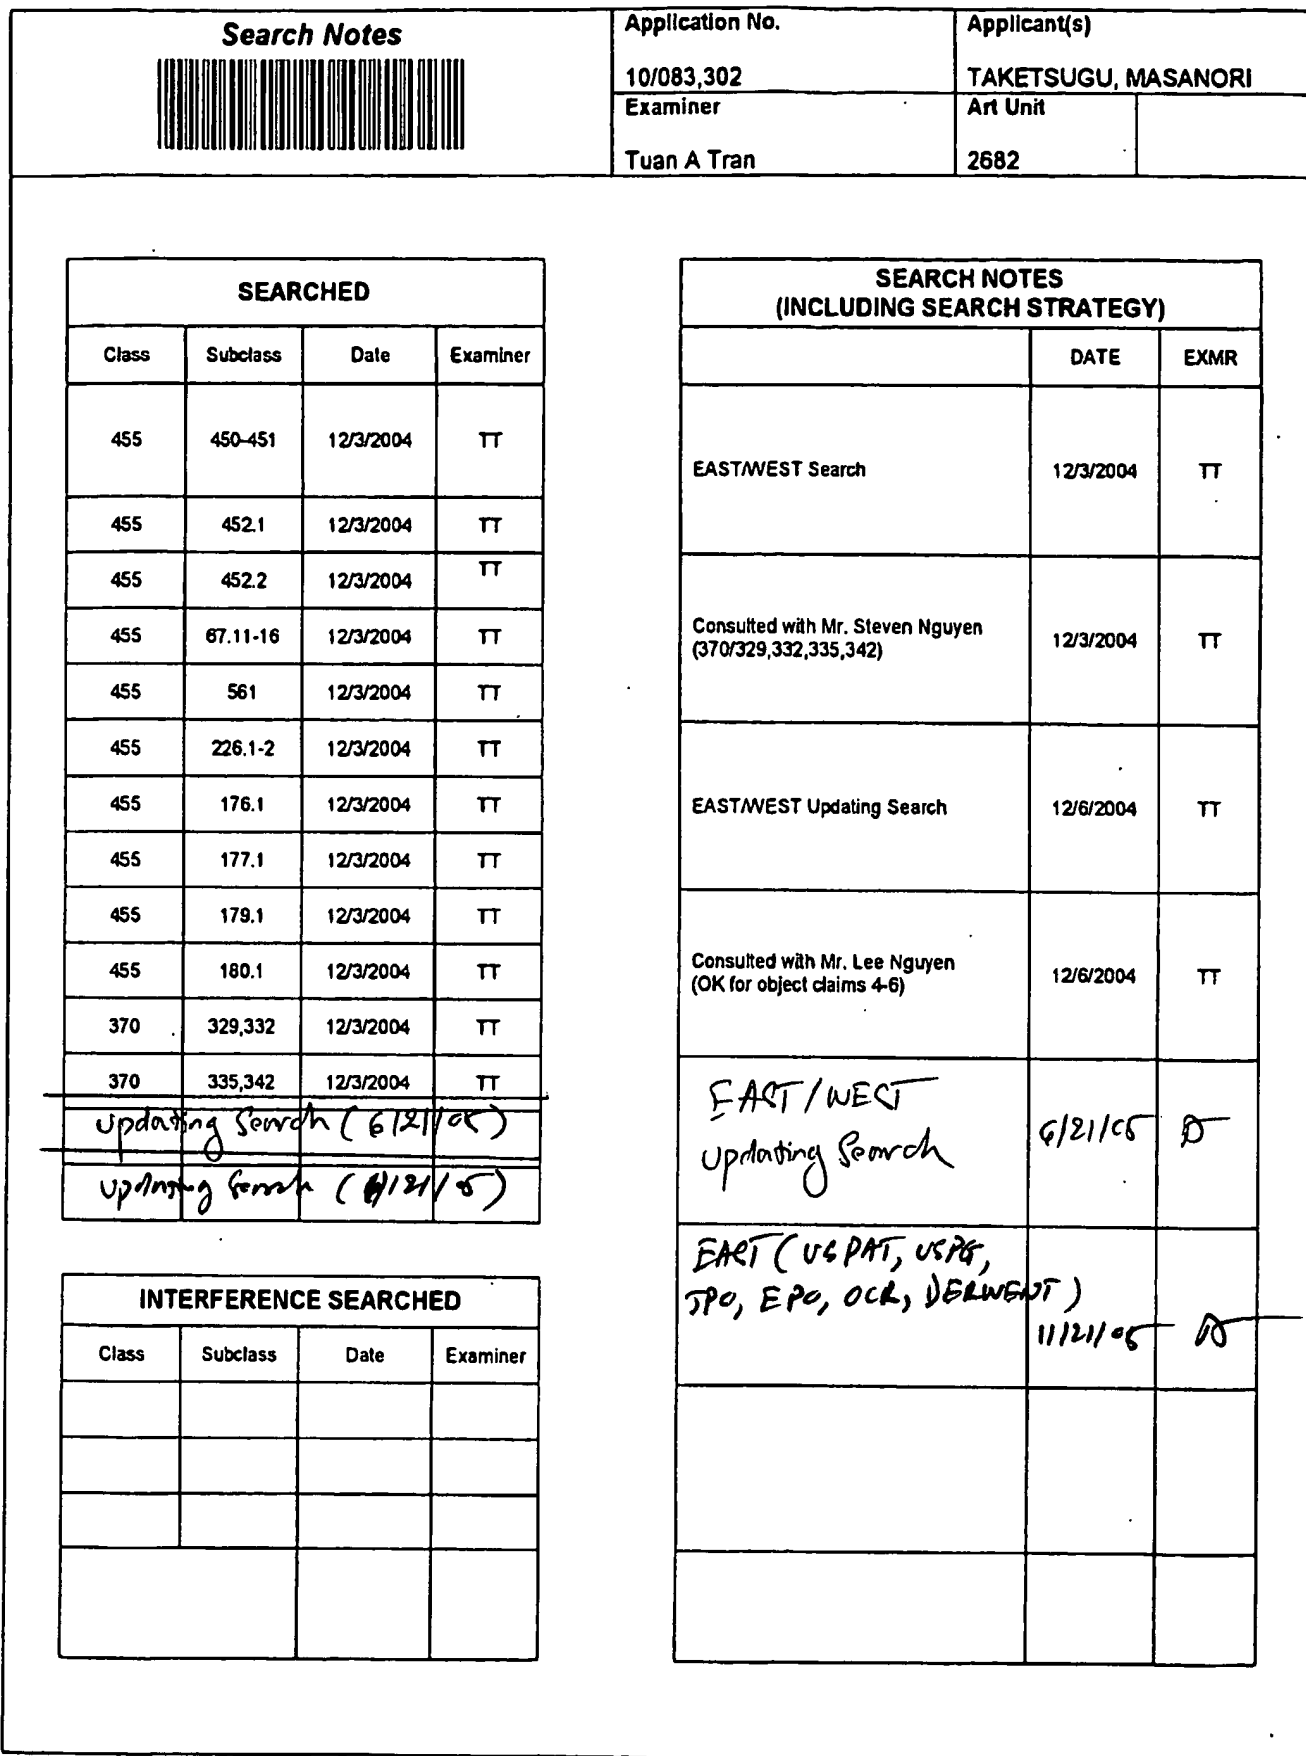 Search Notes
Application No.
10/083,302
Applicant(s)
TAKETSUGU, MASANORI
Examiner
Tuan A Tran
Art Unit
2682
SEARCHED
Class Subclass Date Examiner
455 450-451 12/3/2004 TT
455 452.1 12/3/2004 TT
455 452.2 12/3/2004 TT
455 67.11-16 12/3/2004 TT
455 561 12/3/2004 TT
455 226.1-2 12/3/2004 TT
455 176.1 12/3/2004 TT
455 177.1 12/3/2004 TT
455 179.1 12/3/2004 TT
455 180.1 12/3/2004 TT
370 329,332 12/3/2004 TT
370 335,342 12/3/2004 TT
Updating Search (6/21/05)
Updating Search ( /21/05)
INTERFERENCE SEARCHED
Class Subclass Date Examiner
SEARCH NOTES
(INCLUDING SEARCH STRATEGY)
DATE EXMR
EAST/WEST Search 12/3/2004 TT
Consulted with Mr. Steven Nguyen
(370/329,332,335,342) 12/3/2004 TT
EAST/WEST Updating Search 12/6/2004 TT
Consulted with Mr. Lee Nguyen
(OK for object claims 4-6) 12/6/2004 TT
EAST/WEST
Updating Search 6/21/05
EAST (USPAT, USPG,
JPO, EPO, OCR, DERWENT)
11/21/05